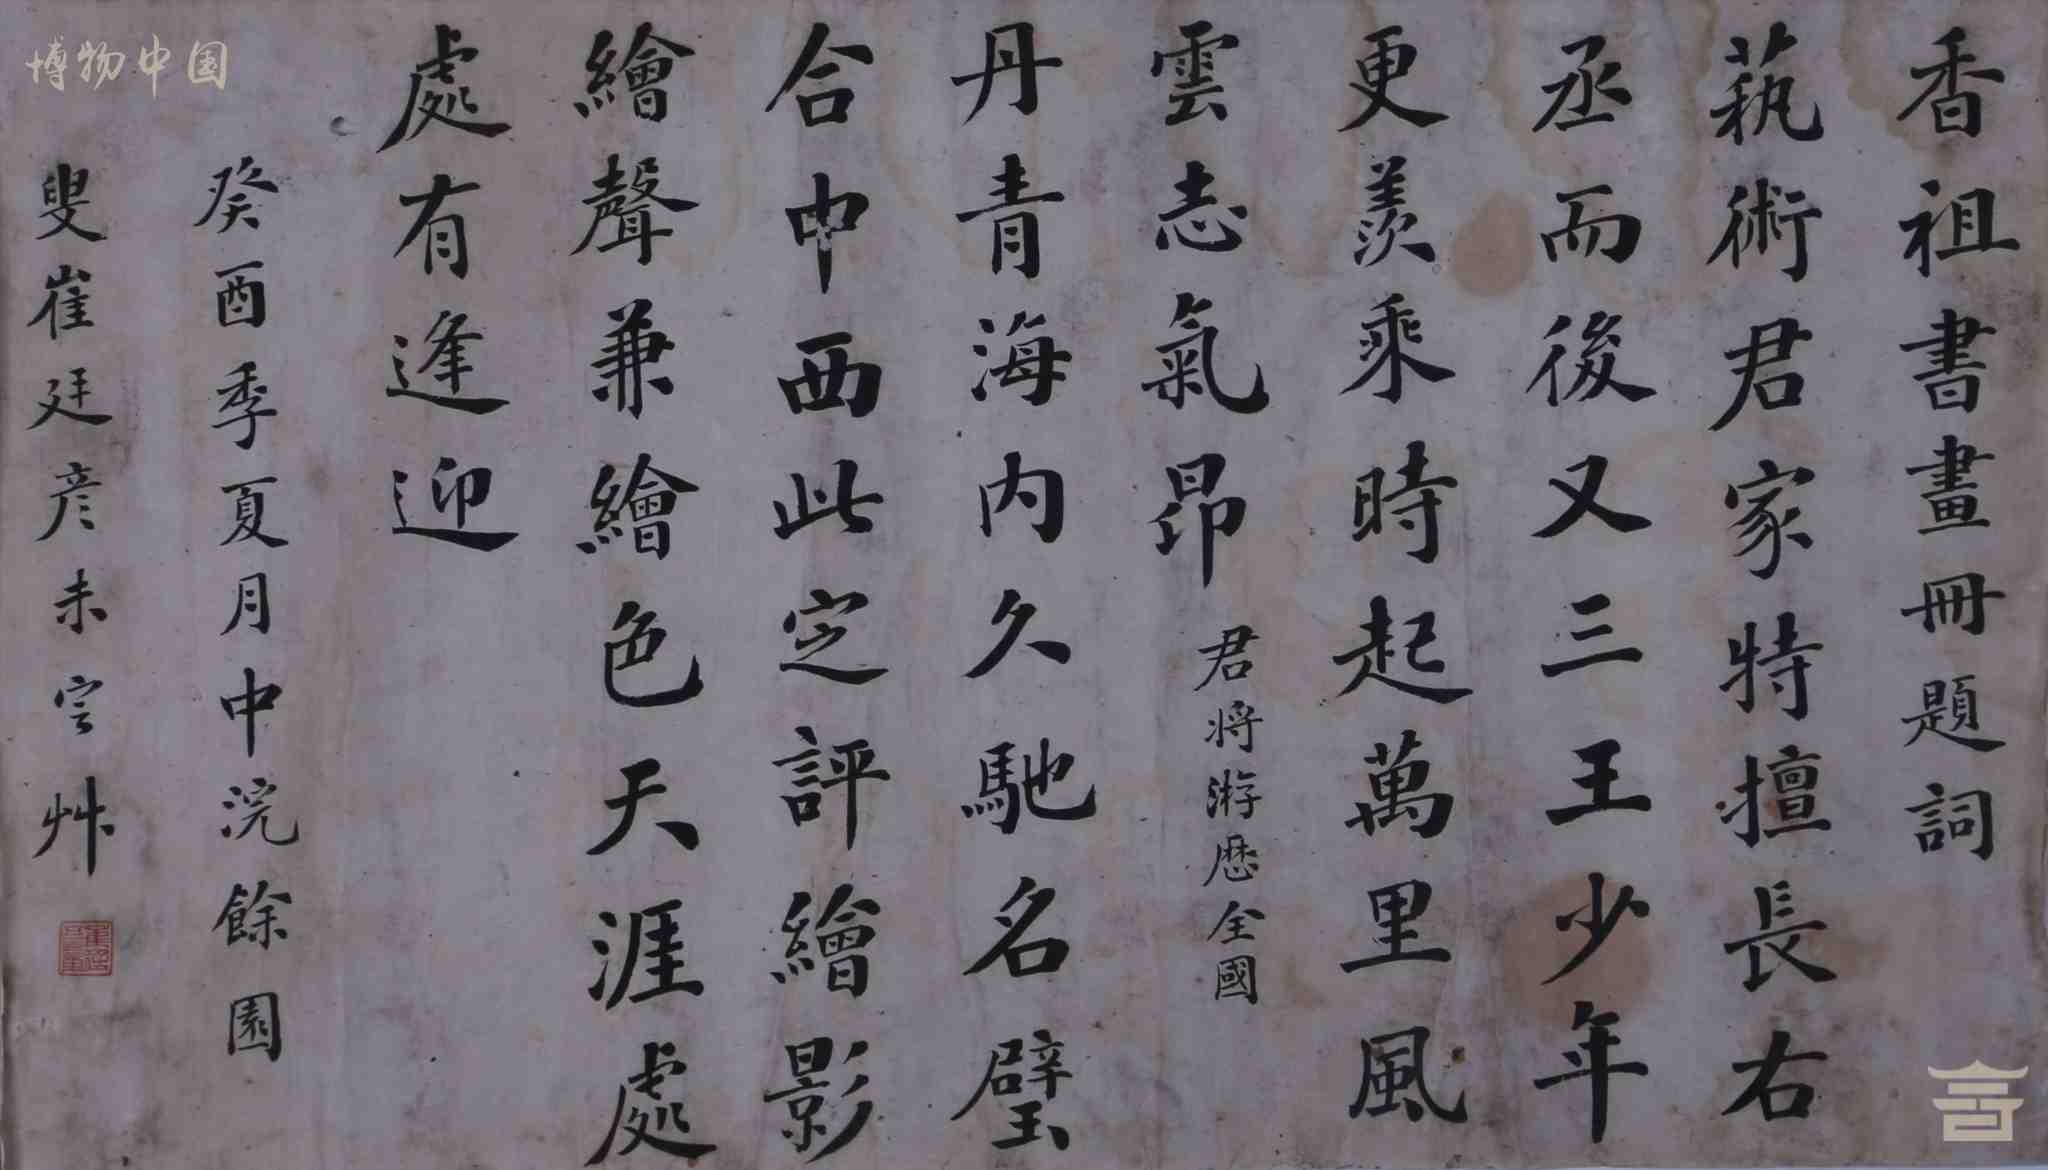 香祖書畫冊題詞
藝術君家特擅長右
丞而後又三王少年
更羨乘時起萬里風
雲志氣昂君將游歷全國
丹青海內久馳名璧
合中西此定評繪影
繪聲兼繪色天涯處
處有逢迎
癸酉季夏月中浣餘園
叟崔廷彥未定艸
博物中国